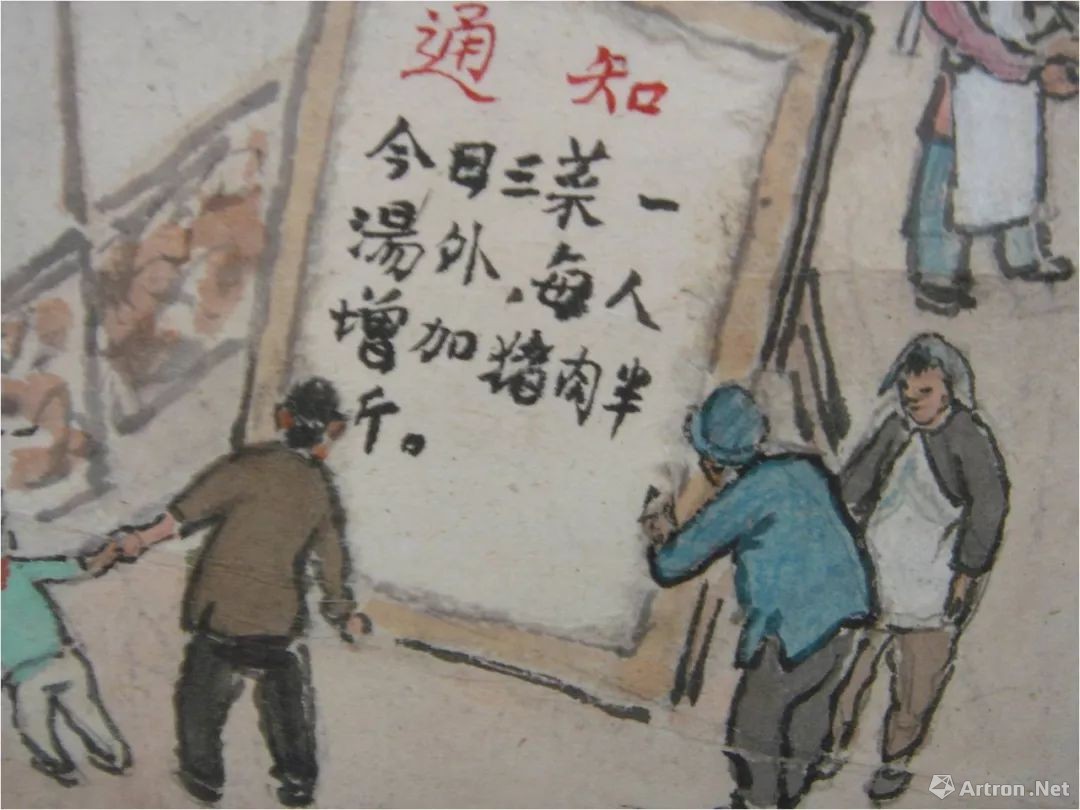 通知
今日三菜一
湯外,每人
增加猪肉半
斤。
Artron.Net